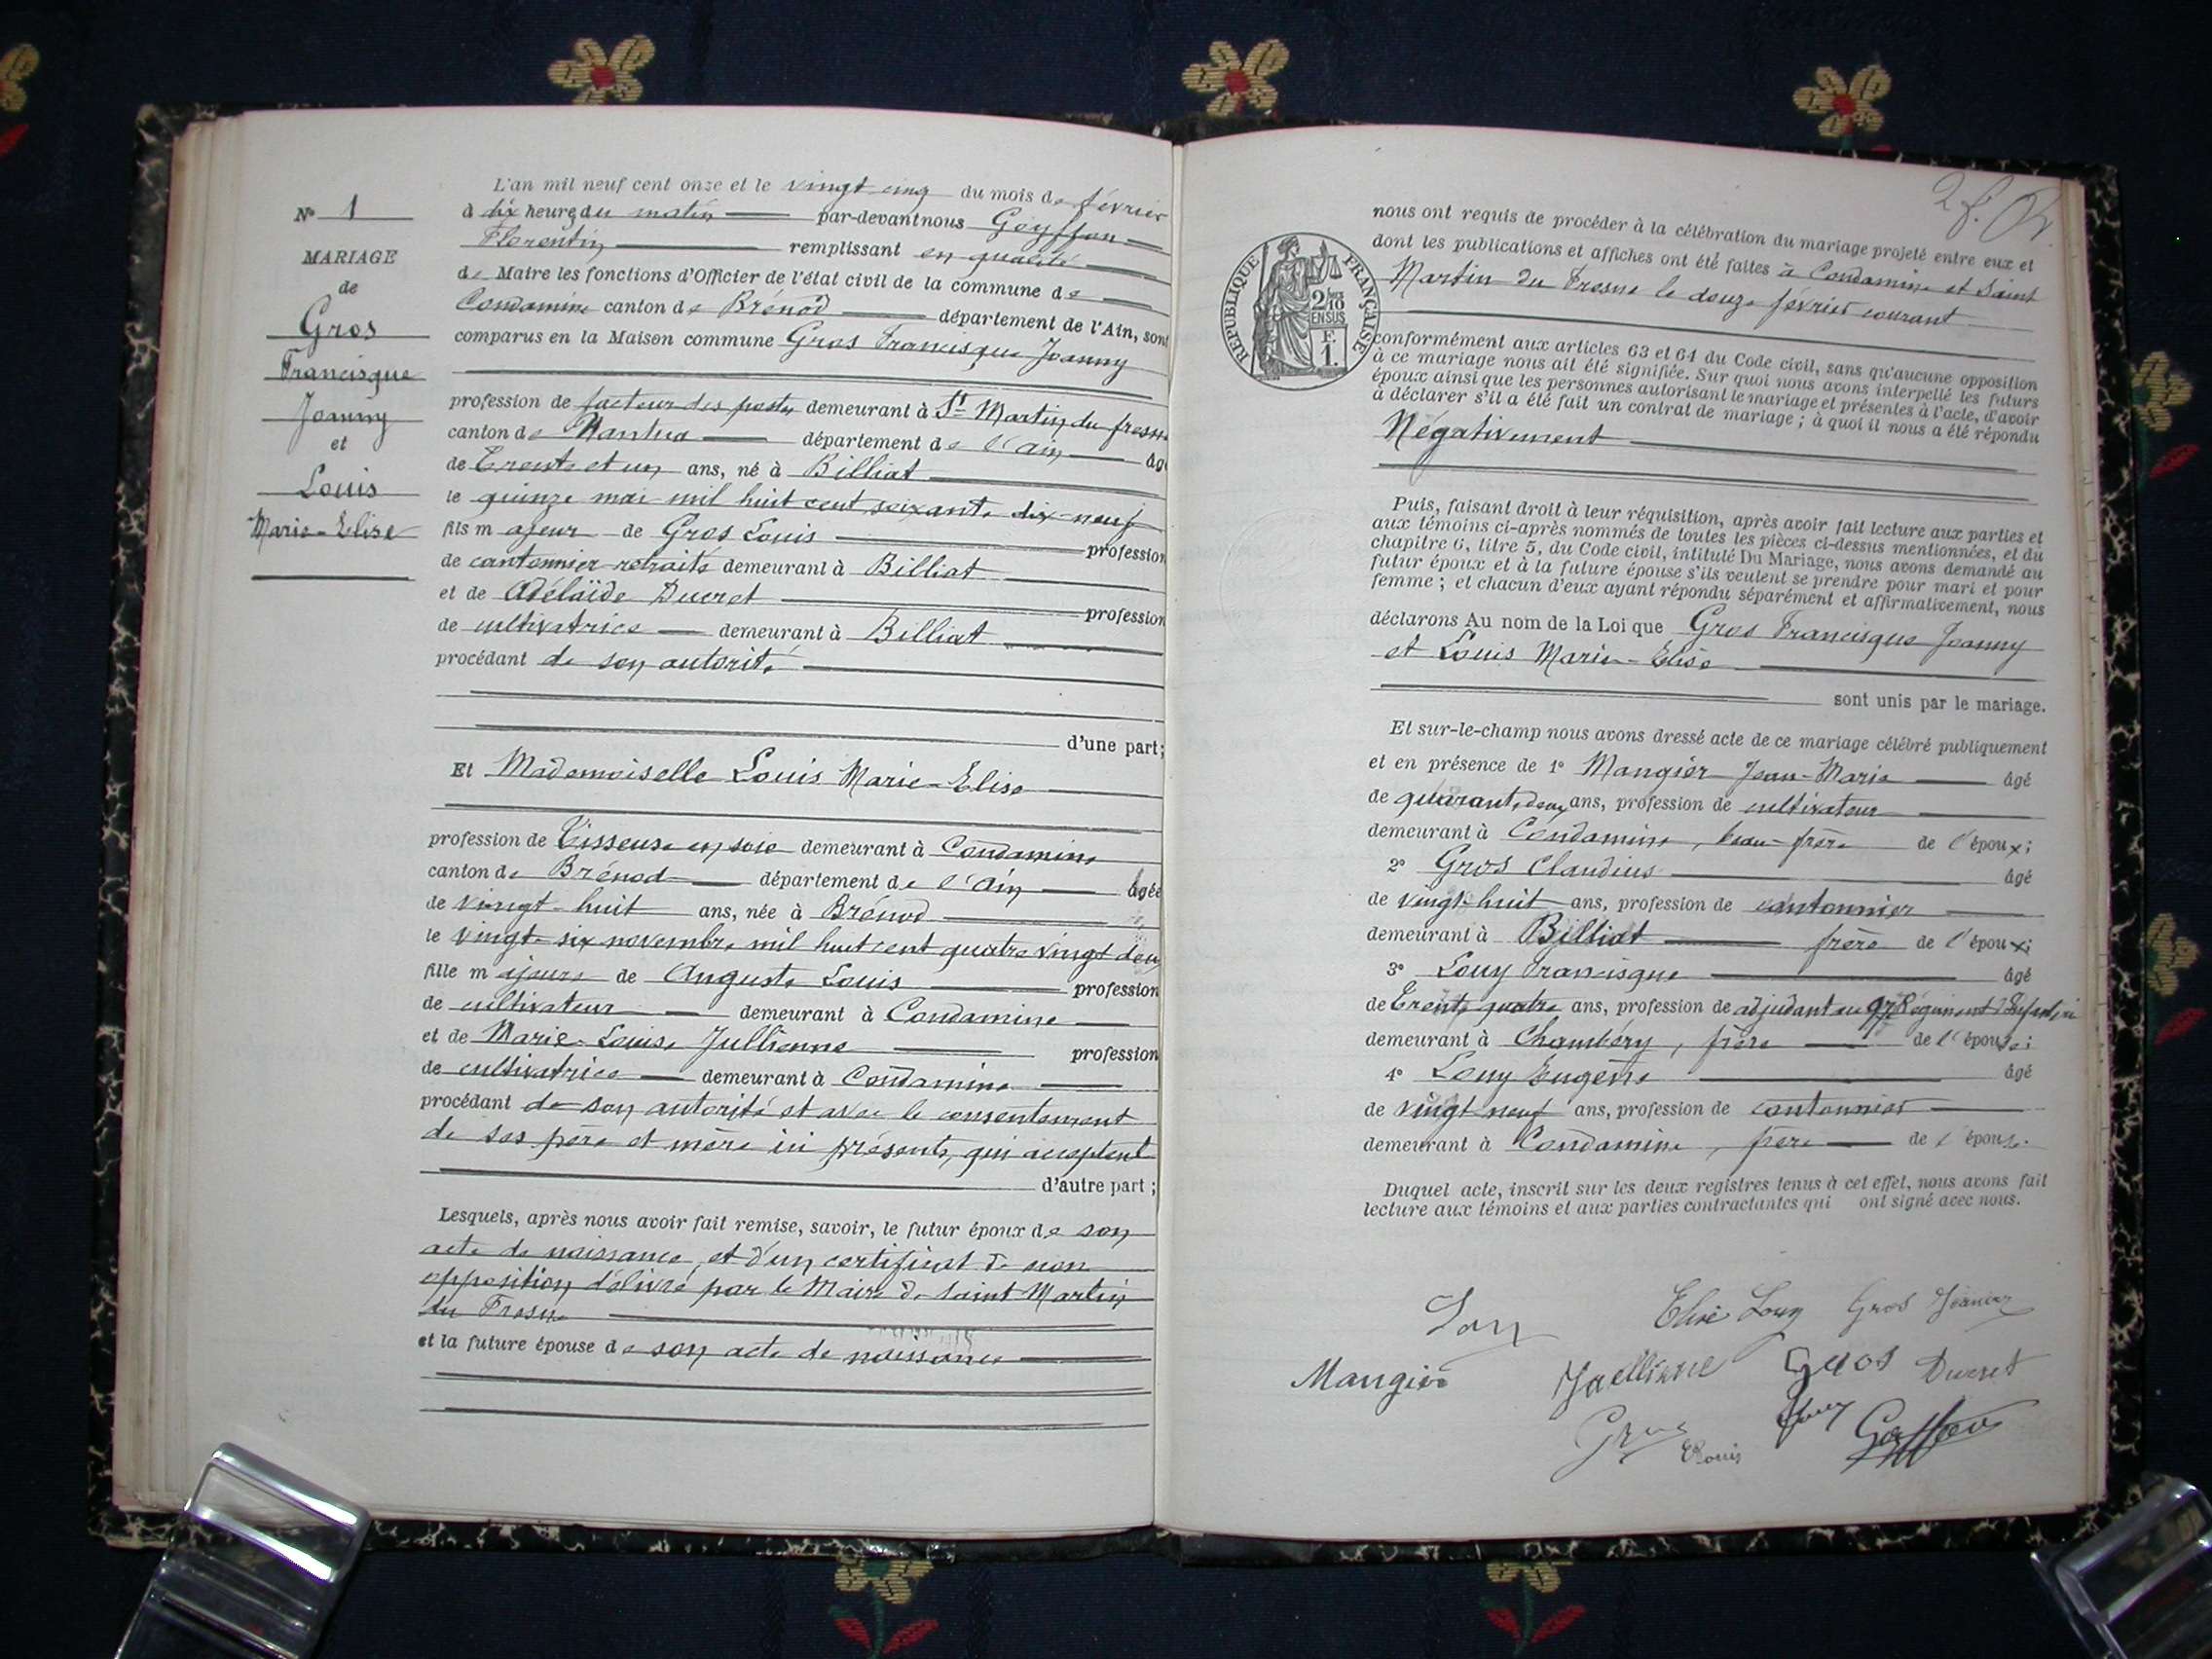 N° 1
MARIAGE
de
Gros
Francisque
Joanny
et
Louis
Marie-Elise
L'an mil neuf cent onze et le vingt cinq du mois de février
à dix heures du matin par-devant nous Goyffon
Florentin remplissant en qualité
de Maire les fonctions d'Officier de l'état civil de la commune de
Condamine canton de Brénod département de l'Ain, sont
comparus en la Maison commune Gros Francisque Joanny
profession de facteur des postes demeurant à St Martin du fresne
canton de Nantua département de l'ain âgé
de Trente et un ans, né à Billiat
le quinze mai mil huit cent soixante dix-neuf
fils majeur de Gros Louis profession
de cantonnier retraité demeurant à Billiat
et de Adélaïde Ducret profession
de cultivatrice demeurant à Billiat
procédant de son autorité
d'une part;
Et Mademoiselle Louis Marie-Elise
profession de Tisseuse en soie demeurant à Condamine
canton de Brénod département de l'Ain âgée
de vingt-huit ans, née à Brénod
le vingt-six novembre mil huit cent quatre vingt deux
fille majeure de Auguste Louis profession
de cultivateur demeurant à Condamine
et de Marie-Louise Jullienne profession
de cultivatrice demeurant à Condamine
procédant de son autorité et avec le consentement
de ses père et mère ici présents, qui acceptent
d'autre part;
Lesquels, après nous avoir fait remise, savoir, le futur époux de son
acte de naissance, et d'un certificat de non
opposition délivré par le Maire de Saint Martin
du Fresne
et la future épouse de son acte de naissance
2 f.
RÉPUBLIQUE FRANÇAISE
2/10
EN SUS
F.
1.
nous ont requis de procéder à la célébration du mariage projeté entre eux et
dont les publications et affiches ont été faites à Condamine et Saint
Martin du Fresne le douze février courant
conformément aux articles 63 et 64 du Code civil, sans qu'aucune opposition
à ce mariage nous ait été signifiée. Sur quoi nous avons interpellé les futurs
époux ainsi que les personnes autorisant le mariage et présentes à l'acte, d'avoir
à déclarer s'il a été fait un contrat de mariage; à quoi il nous a été répondu
Négativement
Puis, faisant droit à leur réquisition, après avoir fait lecture aux parties et
aux témoins ci-après nommés de toutes les pièces ci-dessus mentionnées, et du
chapitre 6, titre 5, du Code civil, intitulé Du Mariage, nous avons demandé au
futur époux et à la future épouse s'ils veulent se prendre pour mari et pour
femme; et chacun d'eux ayant répondu séparément et affirmativement, nous
déclarons Au nom de la Loi que Gros Francisque Joanny
et Louis Marie-Elise
sont unis par le mariage.
Et sur-le-champ nous avons dressé acte de ce mariage célébré publiquement
et en présence de 1° Mangier Jean-Marie âgé
de quarante deux ans, profession de cultivateur
demeurant à Condamine, beau-frère de l'époux;
2° Gros Claudius âgé
de vingt-huit ans, profession de cantonnier
demeurant à Billiat frère de l'époux;
3° Louy Francisque âgé
de Trente quatre ans, profession de adjudant au 97 Régiment d'Infanterie
demeurant à Chambéry, frère de l'épouse;
4° Louy Eugène âgé
de vingt neuf ans, profession de cantonnier
demeurant à Condamine, frère de l'épouse.
Duquel acte, inscrit sur les deux registres tenus à cet effet, nous avons fait
lecture aux témoins et aux parties contractantes qui ont signé avec nous.
Elise Louy Gros Joanny
Mangier Juellienne Gros Ducret
Gros Louis Louy Goyffon